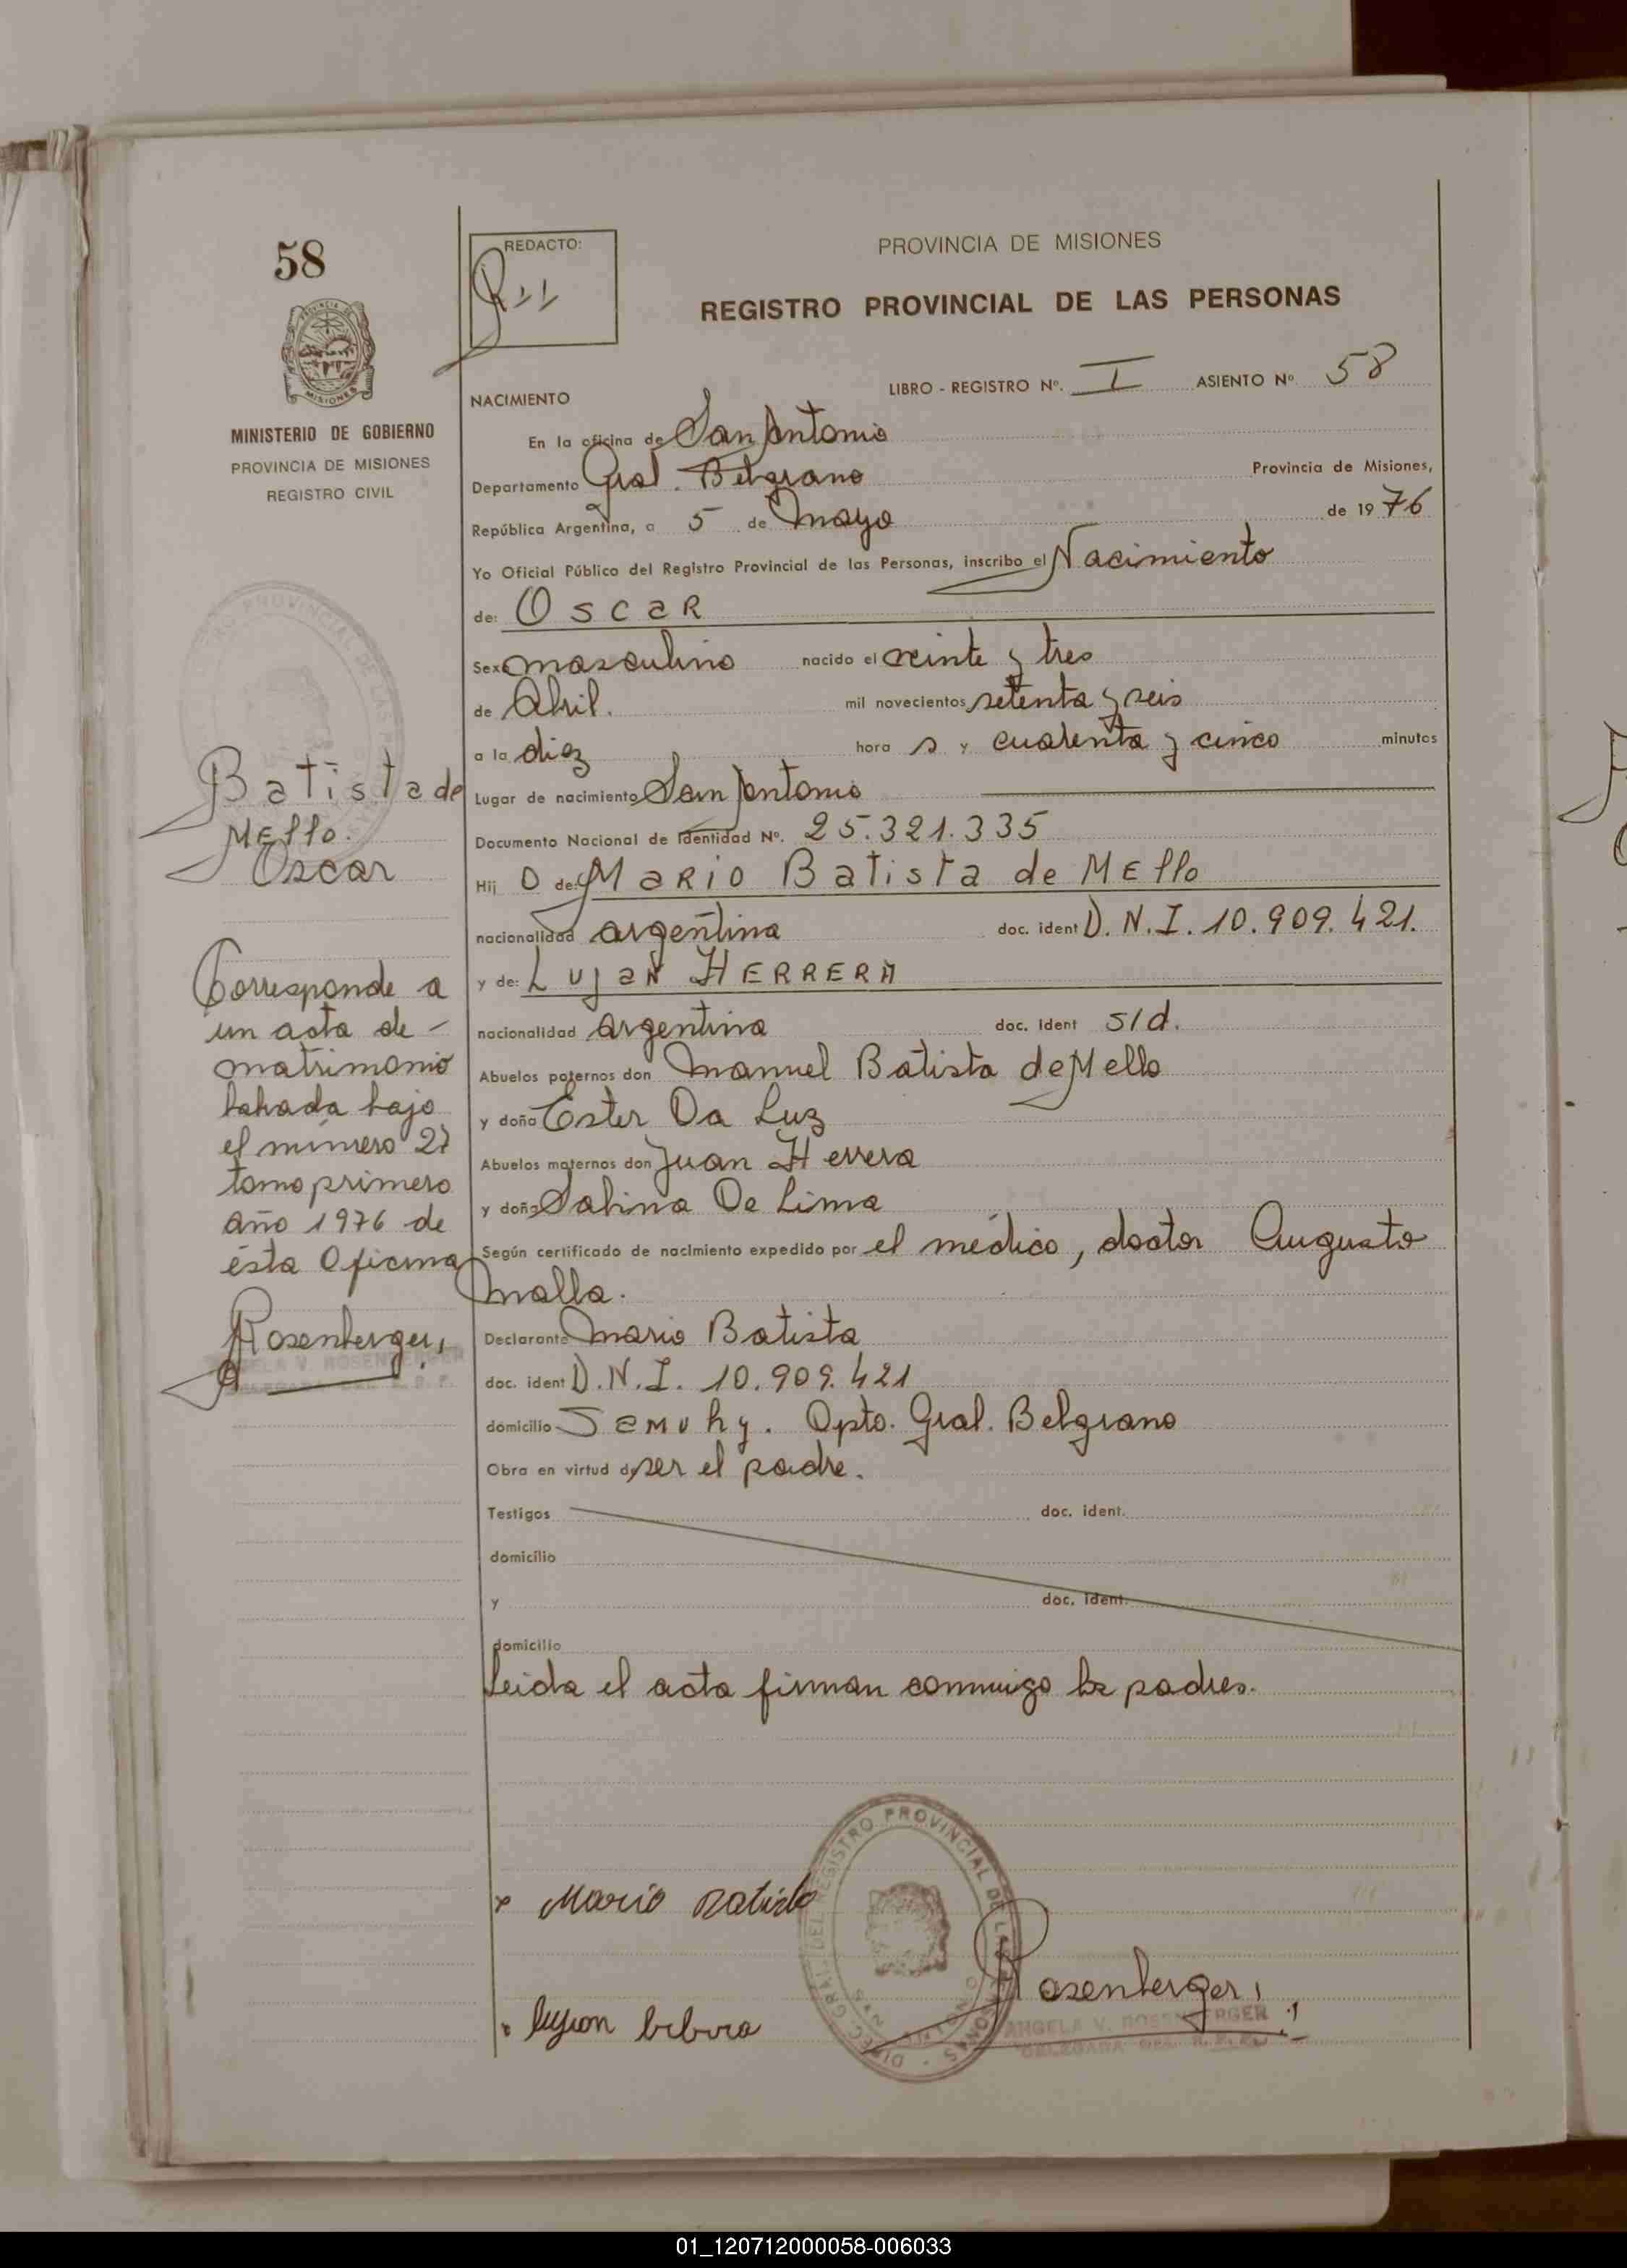 58
REDACTO:
PROVINCIA DE MISIONES
REGISTRO PROVINCIAL DE LAS PERSONAS
MISIONES
MINISTERIO DE GOBIERNO
PROVINCIA DE MISIONES
REGISTRO CIVIL
LIBRO - REGISTRO Nº. I ASIENTO Nº 58
NACIMIENTO
En la oficina de San Antonio
Departamento Gral. Belgrano Provincia de Misiones,
República Argentina, a 5 de Mayo de 1976
Yo Oficial Público del Registro Provincial de las Personas, inscribo el Nacimiento
de: Oscar
Sexo masculino nacido el veinte y tres
de Abril. mil novecientos setenta y seis
a la diez hora s y cuarenta y cinco minutos
Lugar de nacimiento San Antonio
Documento Nacional de Identidad Nº. 25.321.335
Hij o de: Mario Batista de Mello
nacionalidad argentina doc. ident D.N.I. 10.909.421.
y de: Lujan Herrera
nacionalidad argentina doc. ident s/d.
Abuelos paternos don Manuel Batista de Mello
y doña Ester Da Luz
Abuelos maternos don Juan Herrera
y doña Sabina De Lima
Según certificado de nacimiento expedido por el médico, doctor Augusto
Malla.
Declarante Mario Batista
doc. ident D.N.I. 10.909.421
domicilio Samuhy. Dpto. Gral. Belgrano
Obra en virtud de ser el padre.
Testigos doc. ident.
domicilio
y doc. ident.
domicilio
Leida el acta firman conmigo los padres.
Batista de
Mello.
Oscar
Corresponde a
un acta de -
matrimonio
labrada bajo
el número 27
tomo primero
año 1976 de
ésta Oficina
Rosenberger
ANGELA V. ROSENBERGER
Mario Batista
DIREC. GRAL. DEL REGISTRO PROVINCIAL DE LAS PERSONAS
Rosenberger
ANGELA V. ROSENBERGER
01_120712000058-006033